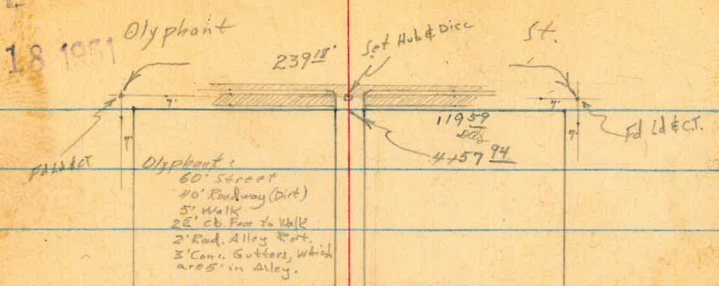 18 1951
Olyphant St.
239 18'
Set Hub & Disc
7' 7'
7' 7'
119 59
4+57 94
Fd Ld & C.T.
Fd Ld & C.T.
Olyphant:
60' Street
40' Roadway (Dirt)
5' Walk
Cb. Face to Walk
2' Rad. Alley Ret.
3' Conc. Gutters, which
are 5' in Alley.